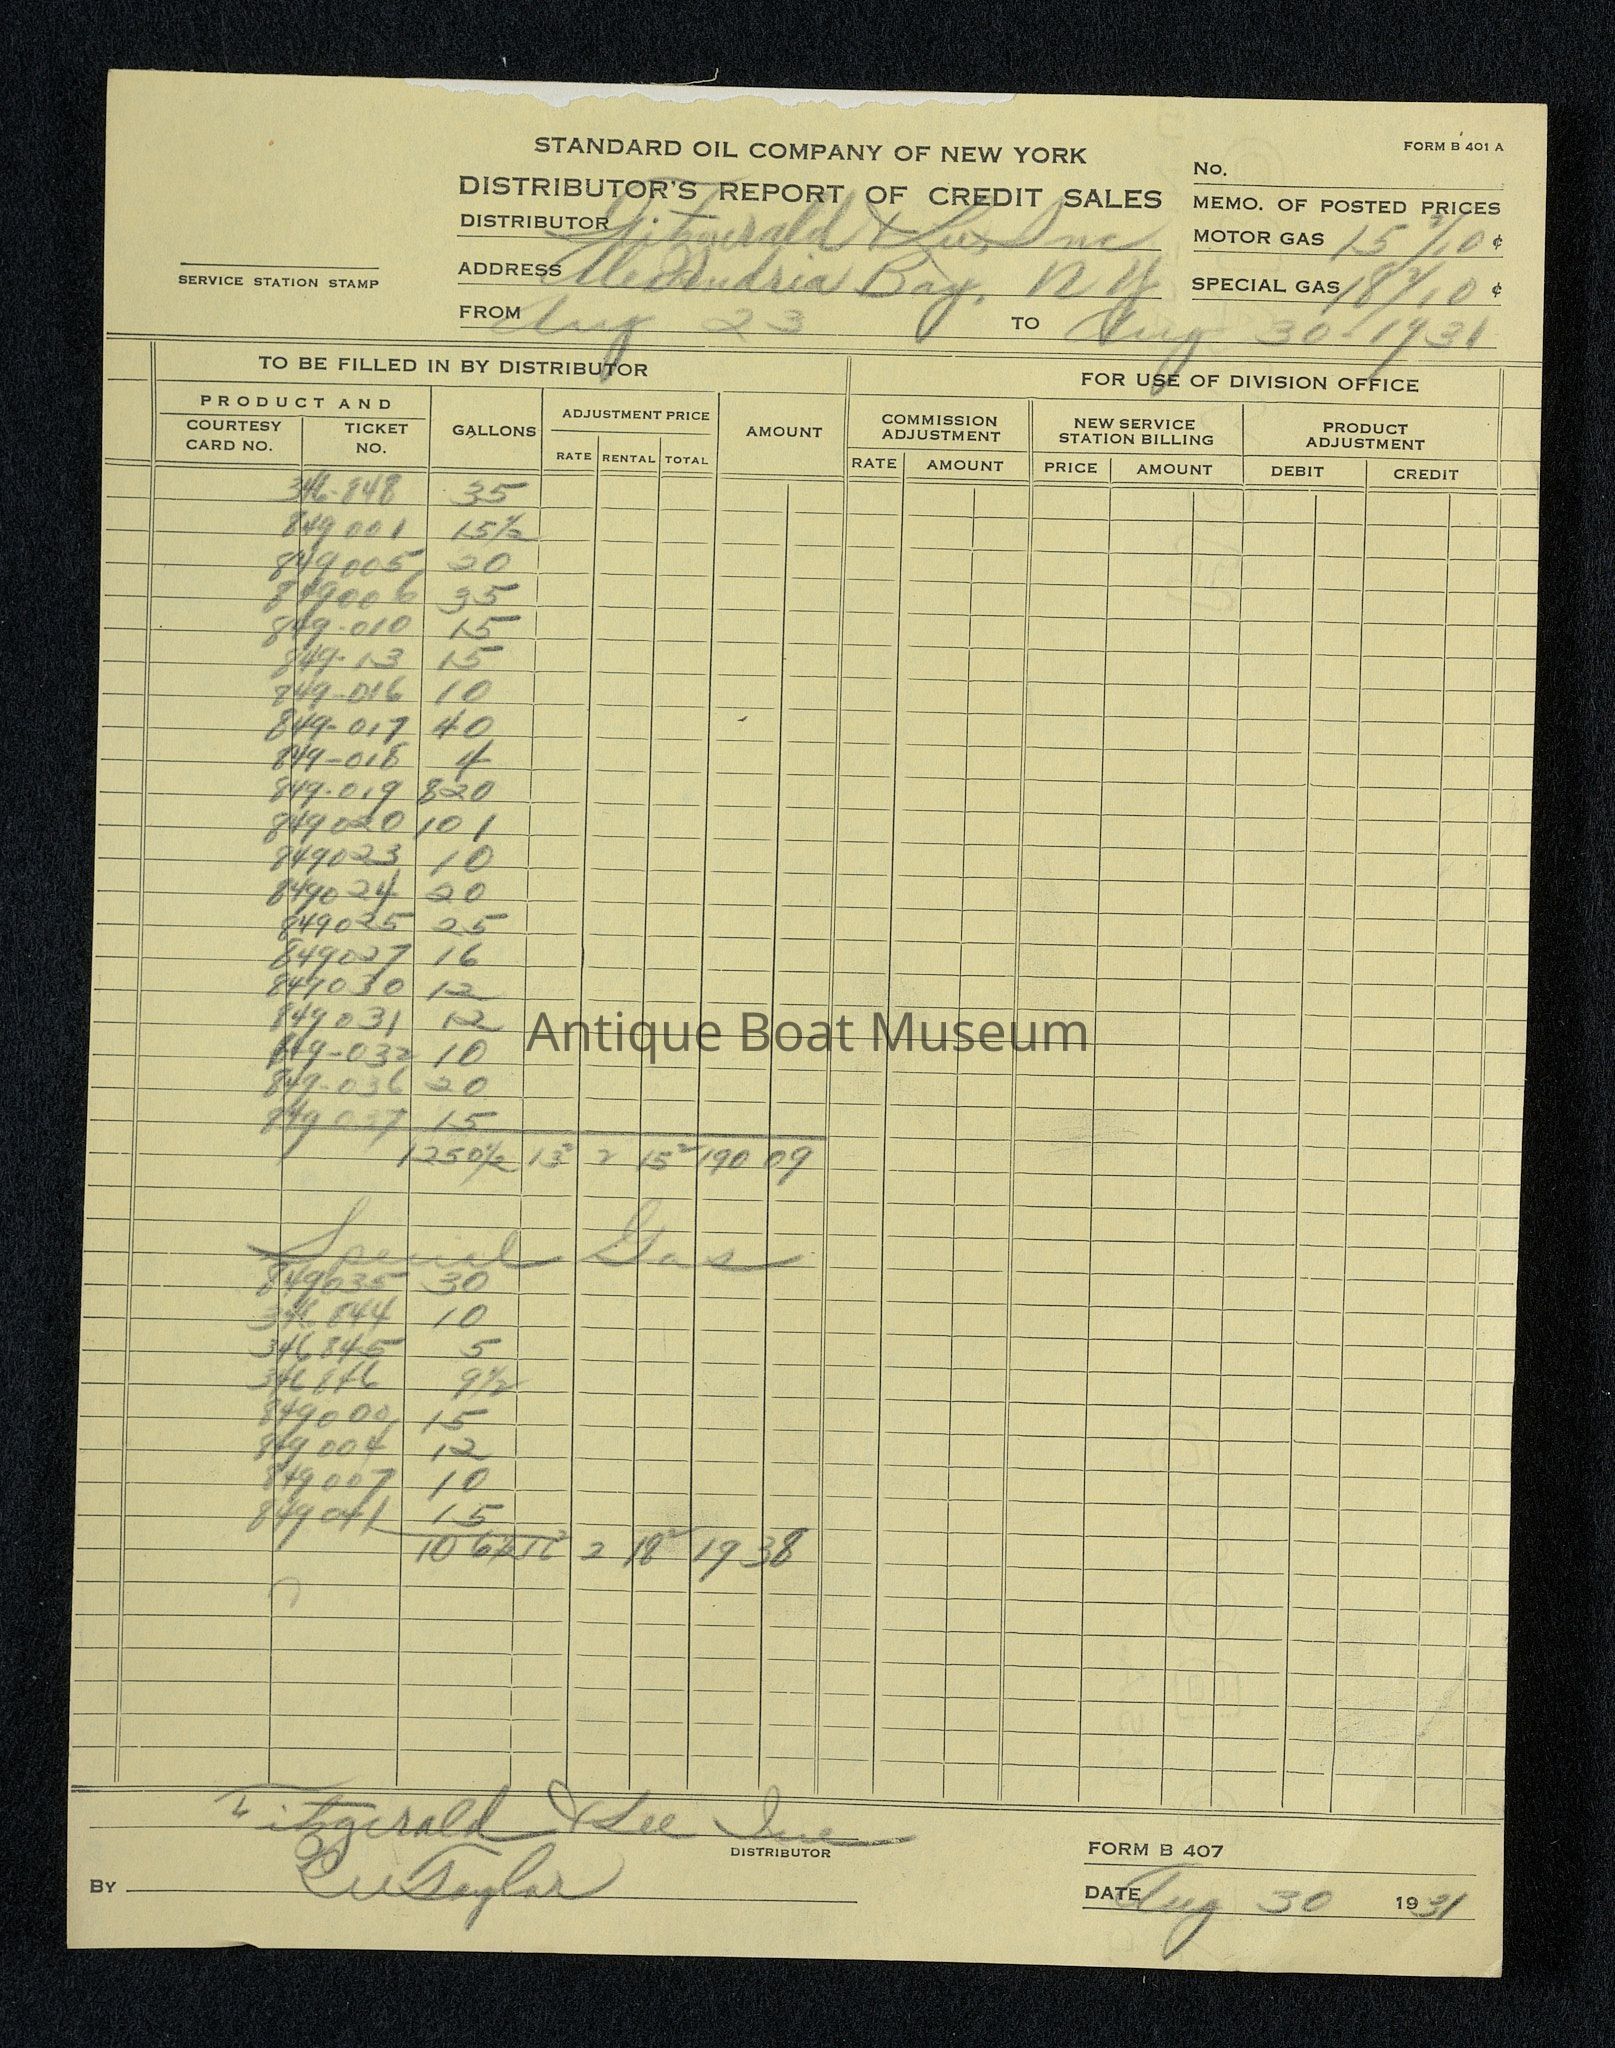 FORM B 401 A
STANDARD OIL COMPANY OF NEW YORK
No.
DISTRIBUTOR'S REPORT OF CREDIT SALES
MEMO. OF POSTED PRICES
DISTRIBUTOR Fitzgerald & Lee Inc
MOTOR GAS 15 2/10 ¢
ADDRESS Alexandria Bay, N Y
SPECIAL GAS 18 2/10 ¢
SERVICE STATION STAMP
FROM Aug 23 TO Aug 30-1931
TO BE FILLED IN BY DISTRIBUTOR
FOR USE OF DIVISION OFFICE
PRODUCT AND
COURTESY CARD NO. TICKET NO. GALLONS ADJUSTMENT PRICE AMOUNT COMMISSION ADJUSTMENT NEW SERVICE STATION BILLING PRODUCT ADJUSTMENT
RATE RENTAL TOTAL RATE AMOUNT PRICE AMOUNT DEBIT CREDIT
346-848 35
849001 15 1/2
849005 20
849006 35
849-010 15
849-13 15
849-016 10
849-017 40
849-018 4
849-019 820
849020 101
849023 10
849024 20
849025 25
849027 16
849030 12
849031 12
849-032 10
849-036 20
849037 15
1250 1/2 13² 2 15² 190 09
Special Gas
849035 30
346844 10
346845 5
346846 9 1/2
849000 15
849004 12
849007 10
849041 15
106 1/2 16² 2 18² 19 38
Antique Boat Museum
Fitzgerald & Lee Inc
DISTRIBUTOR
FORM B 407
BY Taylor
DATE Aug 30 1931